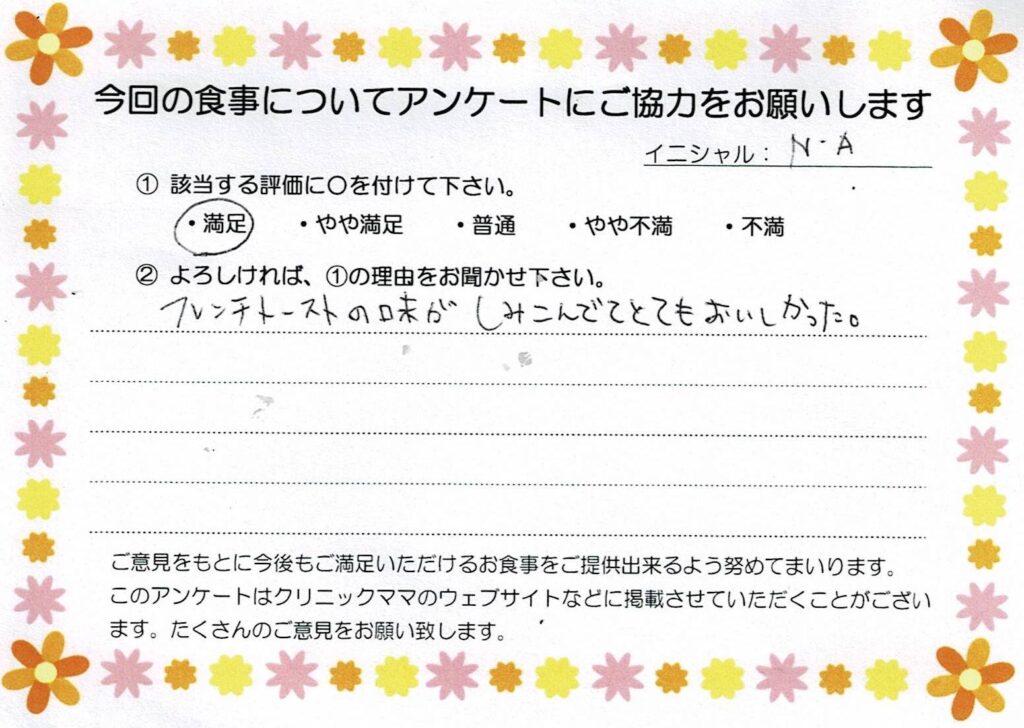 今回の食事についてアンケートにご協力をお願いします
イニシャル： N・A
① 該当する評価に〇を付けて下さい。
・満足 ・やや満足 ・普通 ・やや不満 ・不満
② よろしければ、①の理由をお聞かせ下さい。
フレンチトーストの味がしみこんでてとてもおいしかった。
ご意見をもとに今後もご満足いただけるお食事をご提供出来るよう努めてまいります。
このアンケートはクリニックママのウェブサイトなどに掲載させていただくことがござい
ます。たくさんのご意見をお願い致します。